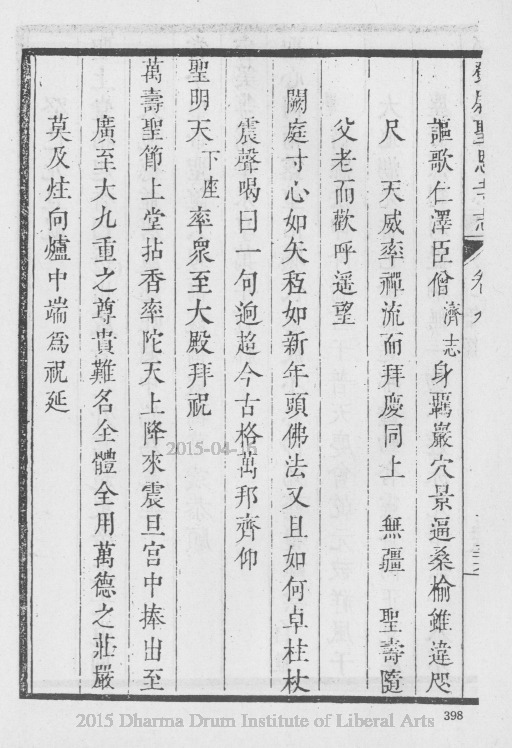 聖恩寺志
卷
謳歌仁澤臣僧濟志身羈巖穴景逼桑榆雖違咫
尺　天威率禪流而拜慶同上　無疆　聖壽隨
父老而歡呼遥望
闕庭寸心如矢秪如新年頭佛法又且如何卓柱杖
震聲喝曰一句逈超今古格萬邦齊仰
聖明天下座率衆至大殿拜祝
萬壽聖節上堂拈香率陀天上降來震旦宫中捧出至
廣至大九重之尊貴難名全體全用萬德之莊嚴
莫及炷向爐中端爲祝延
2015-04-16
398
2015 Dharma Drum Institute of Liberal Arts